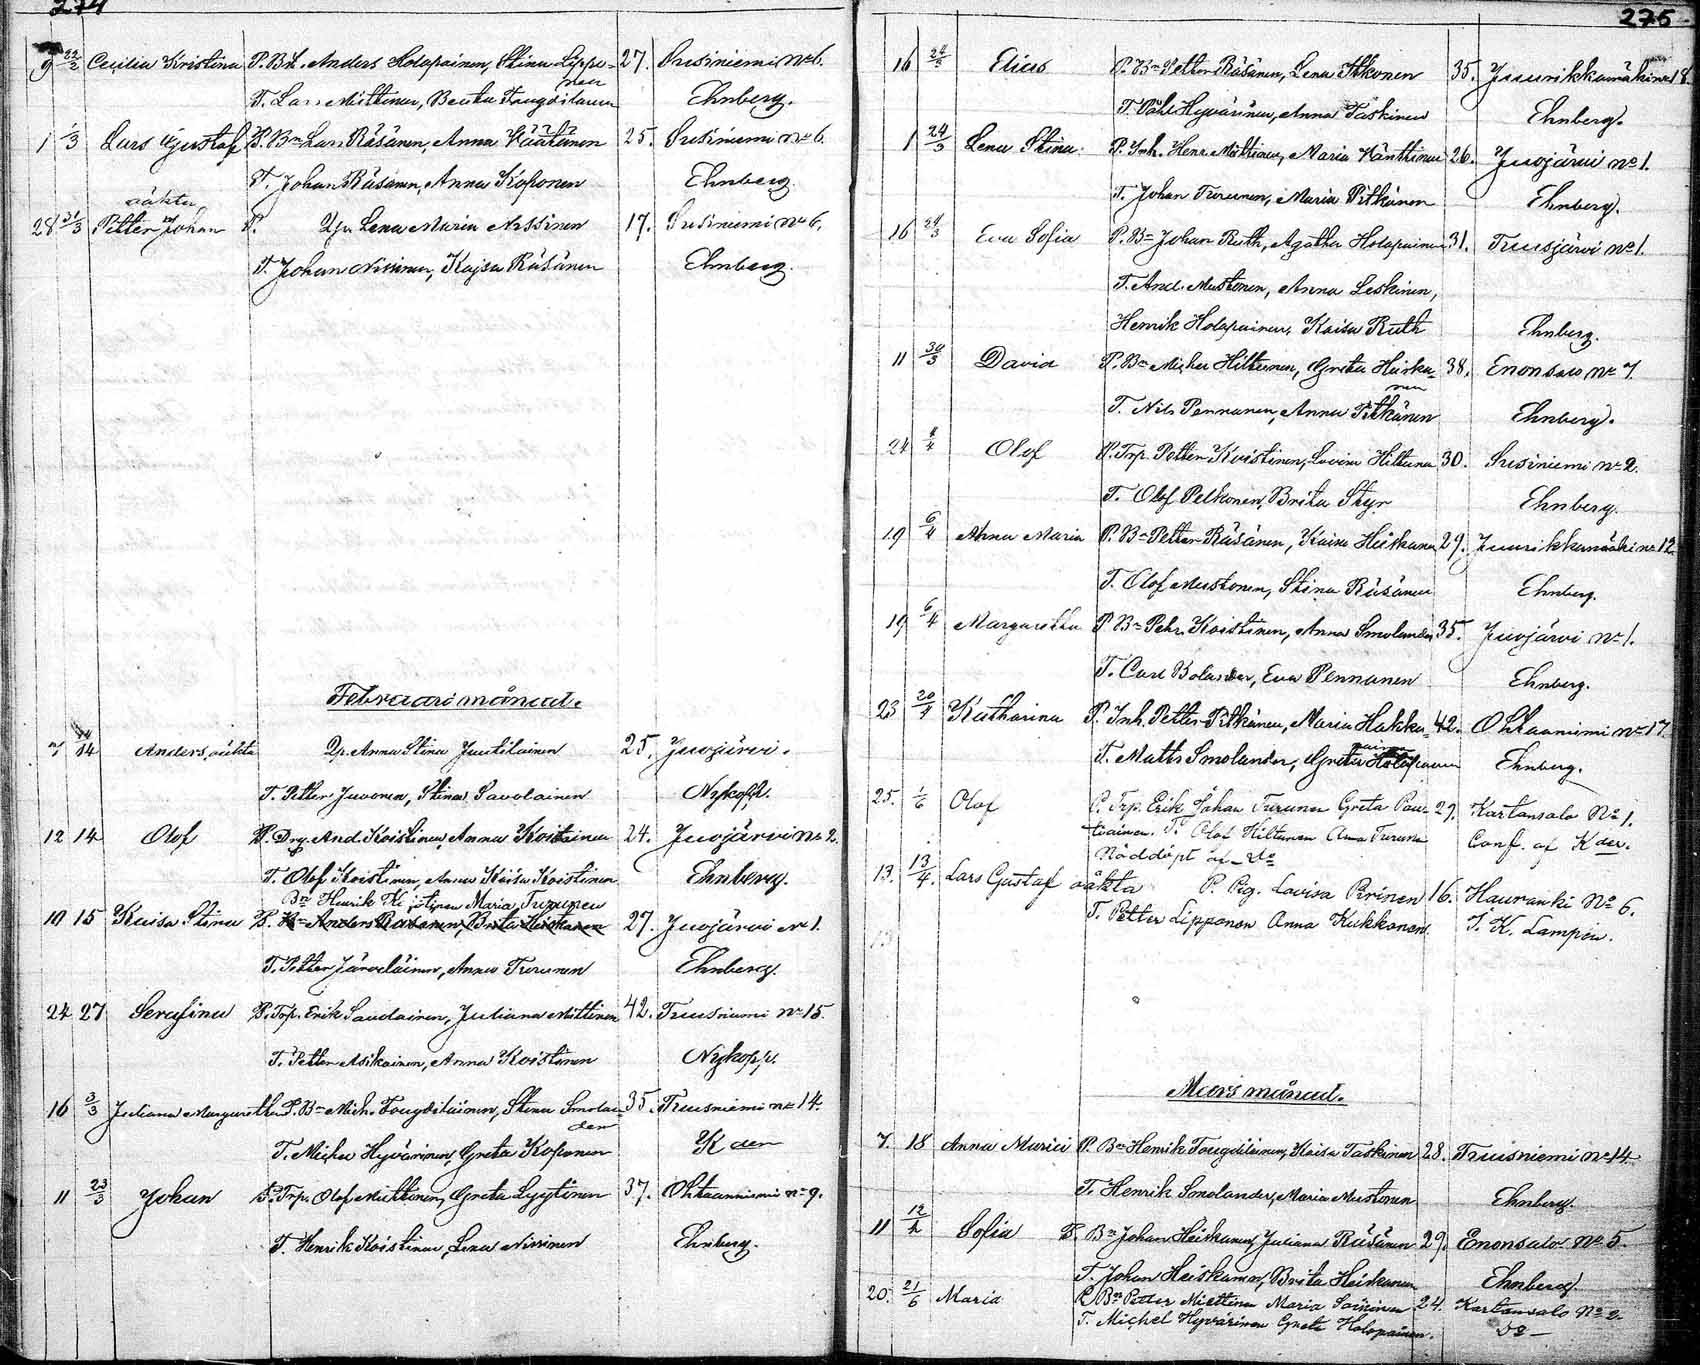 274
9 22/2 Cecilia Kristina P. Bd. Anders Holopainen, Stina Lippo- 27. Susiniemi No 6.
nen
T. Lars Miettinen, Beata Tougditainen Ehnberg.
1 1/3 Lars Gustaf P. Bn Lars Räsänen, Anna Väätäinen 25. Susiniemi No 6.
T. Johan Räsänen, Anna Koponen Ehnberg.
oäkta
28 31/3 Petter Johan P. Lena Maria Nissinen 17. Susiniemi No 6.
T. Johan Nissinen, Kajsa Räsänen Ehnberg.
Februari månad.
7 14 Anders, oäkta Anna Stina Juutilainen 25. Juojärvi.
T. Petter Juvonen, Stina Savolainen Nykopp.
12 14 Olof P. Drg. And. Koistinen, Anna Koistinen 24. Juojärvi No 2.
T. Olof Koistinen, Anna Kaisa Koistinen Ehnberg.
Bn Henrik Koistinen Maria Turunen
10 15 Kaisa Stina P. Bn Anders Räsänen, Brita Heiskanen 27. Juojärvi No 1.
T. Petter Järveläinen, Anna Turunen Ehnberg.
24 27 Serafina P. Trp. Erik Saulainen, Juliana Miettinen 42. Tuusniemi No 15.
T. Petter Asikainen, Anna Koistinen Nykopp.
16 3/3 Juliana Margaretha P. Bn Mich. Tougditainen, Stina Smolan- 35. Tuusniemi No 14.
der
T. Michel Hyvärinen, Greta Koponen K der
11 23/3 Johan P. Trp. Olof Miettinen, Greta Lyytinen 37. Ohtaanniemi No 9.
T. Henrik Koistinen, Lena Nissinen Ehnberg.
275
16 24/3 Elias P. Bn Petter Räsänen, Lena Itkonen 35. Juurikkamäki No 18.
T. Påhl Hyvärinen, Anna Taskinen Ehnberg.
1 24/3 Lena Stina P. Inh. Henr. Miettinen, Maria Känttinen 26. Juojärvi No 1.
T. Johan Turunen, Maria Pitkänen Ehnberg.
16 24/3 Eva Sofia P. Bn Johan Ruth, Agatha Holopainen 31. Tuusjärvi No 1.
T. And. Mustonen, Anna Leskinen,
Henrik Holopainen, Kaisa Ruth Ehnberg.
11 30/3 David P. Bn Michel Hiltunen, Greta Heiska- 38. Enonsalo No 7.
nen
T. Nils Pennanen, Anna Pitkänen Ehnberg.
24 4/4 Olof P. Trp. Petter Koistinen, Lovisa Hiltunen 30. Susiniemi No 2.
T. Olof Pelkonen, Brita Styr Ehnberg.
19 6/4 Anna Maria P. Bn Petter Räsänen, Kaisa Heiskanen 29. Juurikkamäki No 12.
T. Olof Mustonen, Stina Räsänen Ehnberg.
19 6/4 Margaretha P. Bn Pehr Koistinen, Anna Smolander 35. Juojärvi No 1.
T. Carl Bolander, Eva Pennanen Ehnberg.
23 20/4 Katharina P. Inh. Petter Pitkänen, Maria Hakka- 42. Ohtaanniemi No 17.
rainen
T. Matts Smolander, Greta Holopainen Ehnberg.
25. 1/6 Olof P. Trp. Erik Johan Turunen Greta Pau- 29. Kartansalo No 1.
tiainen. T. Olof Hiltunen Anna Turunen Conf. af K der.
Nöddöpt af
13. 13/4. Lars Gustaf oäkta P. Pig. Lovisa Pirinen 16. Hauranki No 6.
T. Petter Lipponen Anna Kukkonen. J. K. Lampén.
Mars månad.
7. 18 Anna Maria P. Bn Henrik Tougditainen, Kaisa Taskinen 28. Tuusniemi No 14.
T. Henrik Smolander, Maria Mustonen Ehnberg.
11 12/4 Sofia P. Bn Johan Heiskanen, Juliana Räsänen 29. Enonsalo No 5.
T. Johan Heiskanen, Brita Heiskanen Ehnberg.
20. 21/6 Maria P. Bn Petter Miettinen Maria Soininen 24. Kartansalo No 2.
T. Michel Hyvärinen Greta Holopainen. Do